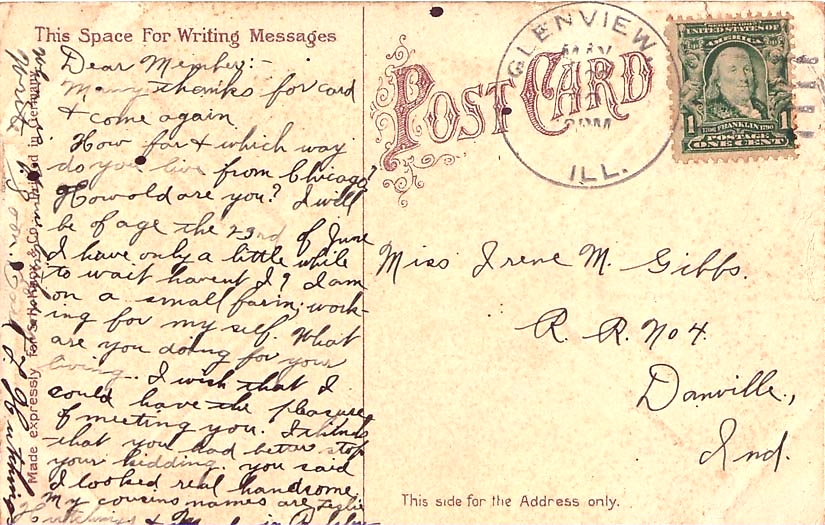 This Space For Writing Messages
Dear Member:-
Many thanks for card
& come again
How far & which way
do you live from Chicago?
How old are you? I will
be of age the 23rd of June
I have only a little while
to wait havent I? I am
on a small farm, work-
ing for my self. What
are you doing for your
living. I wish that I
could have the pleasure
of meeting you. I think
that you had better stop
your kidding. you said
I looked real handsome.
My cousins names are Leslie
Hutchings &
Made expressly for Co. Printed in Germany.
POST CARD
GLENVIEW,
MAY
PM
ILL.
SERIES 1902
UNITED STATES OF
AMERICA
1 1
1706 FRANKLIN 1790
POSTAGE
ONE CENT
Miss Irene M. Gibbs.
R. R. No 4.
Danville,
Ind.
This side for the Address only.